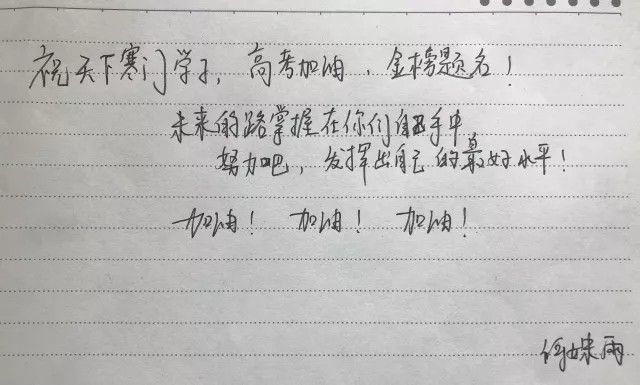 祝天下寒门学子，高考加油，金榜题名！
未来的路掌握在你们自己手中
努力吧，发挥出自己的最好水平！
加油！ 加油！ 加油！
雨